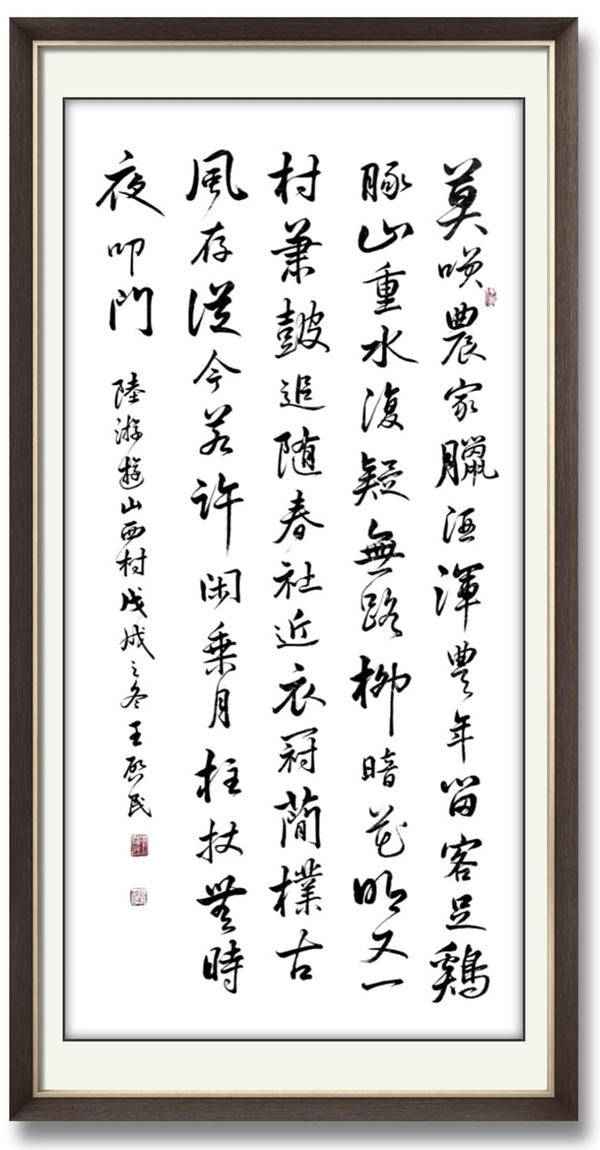 莫嘆農家臘酒渾豐年留客足鷄
豚山重水復疑無路柳暗花明又一
村蕭鼓追随春社近衣冠蕳樸古
風存從今若许闲乗月柱扙無時
夜叩門
陸游遊山西村戊戌之冬王啟民